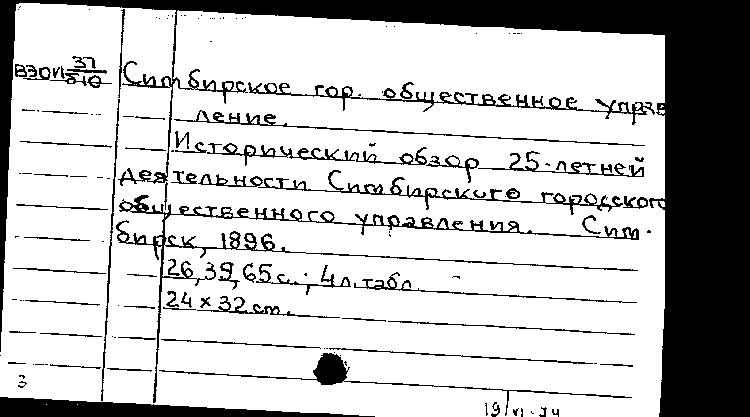 37
ВЗОИ 510 Симбирское гор. общественное управ
ление.
Исторический обзор 25-летней
деятельности Симбирского городского
общественного управления. Сим-
бирск, 1896.
26, 39, 65 с.; 4 л. табл.
24 × 32 см.
3